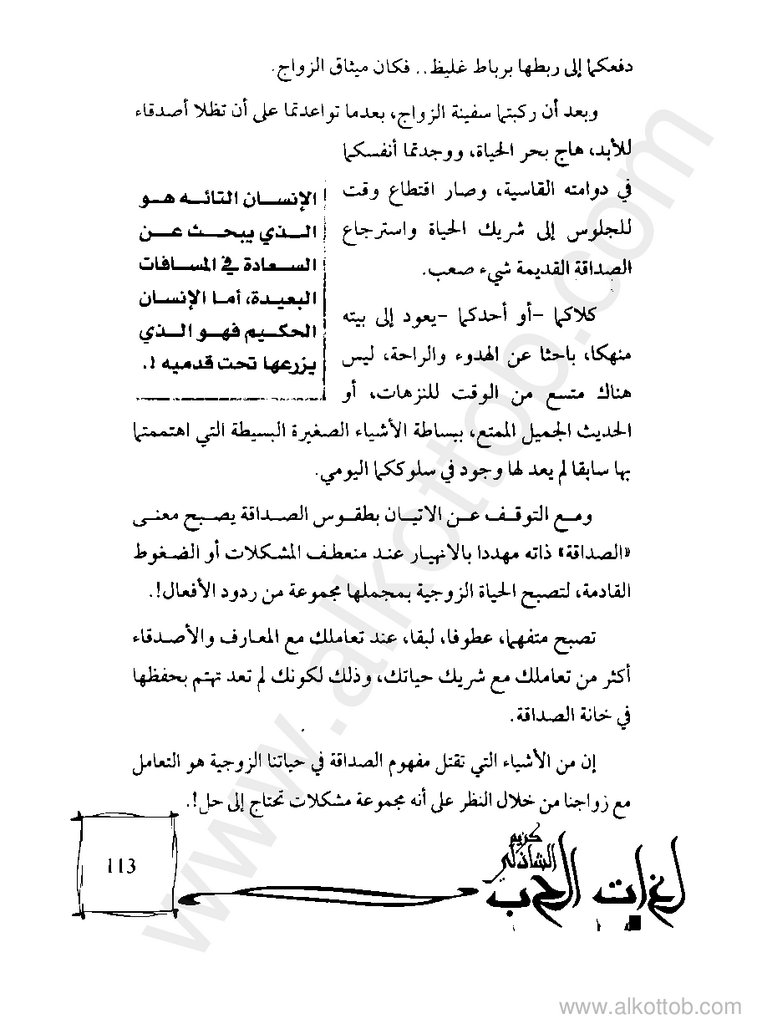 دفعكما إلى ربطها برباط غليظ.. فكان ميثاق الزواج.
وبعد أن ركبتما سفينة الزواج، بعدما تواعدتما على أن تظلا أصدقاء
للأبد، هاج بحر الحياة، ووجدتما أنفسكما
في دوامته القاسية، وصار اقتطاع وقت
للجلوس إلى شريك الحياة واسترجاع
الصداقة القديمة شيء صعب.
كلاكما -أو أحدكما -يعود إلى بيته
منهكا، باحثا عن الهدوء والراحة، ليس
هناك متسع من الوقت للنزهات، أو
الحديث الجميل الممتع، ببساطة الأشياء الصغيرة البسيطة التي اهتممتما
بها سابقا لم يعد لها وجود في سلوككما اليومي.
الإنسان التائه هو
الذي يبحث عن
السعادة في المسافات
البعيدة، أما الإنسان
الحكيم فهو الذي
يزرعها تحت قدميه !.
ومع التوقف عن الاتيان بطقوس الصداقة يصبح معنى
«الصداقة» ذاته مهددا بالانهيار عند منعطف المشكلات أو الضغوط
القادمة، لتصبح الحياة الزوجية بمجملها مجموعة من ردود الأفعال!.
تصبح متفهما، عطوفا، لبقا، عند تعاملك مع المعارف والأصدقاء
أكثر من تعاملك مع شريك حياتك، وذلك لكونك لم تعد تهتم بحفظها
في خانة الصداقة.
إن من الأشياء التي تقتل مفهوم الصداقة في حياتنا الزوجية هو التعامل
مع زواجنا من خلال النظر على أنه مجموعة مشكلات تحتاج إلى حل!.
كريم
الشاذلي
لغات الحب
113
www.alkottob.com
www.alkottob.com